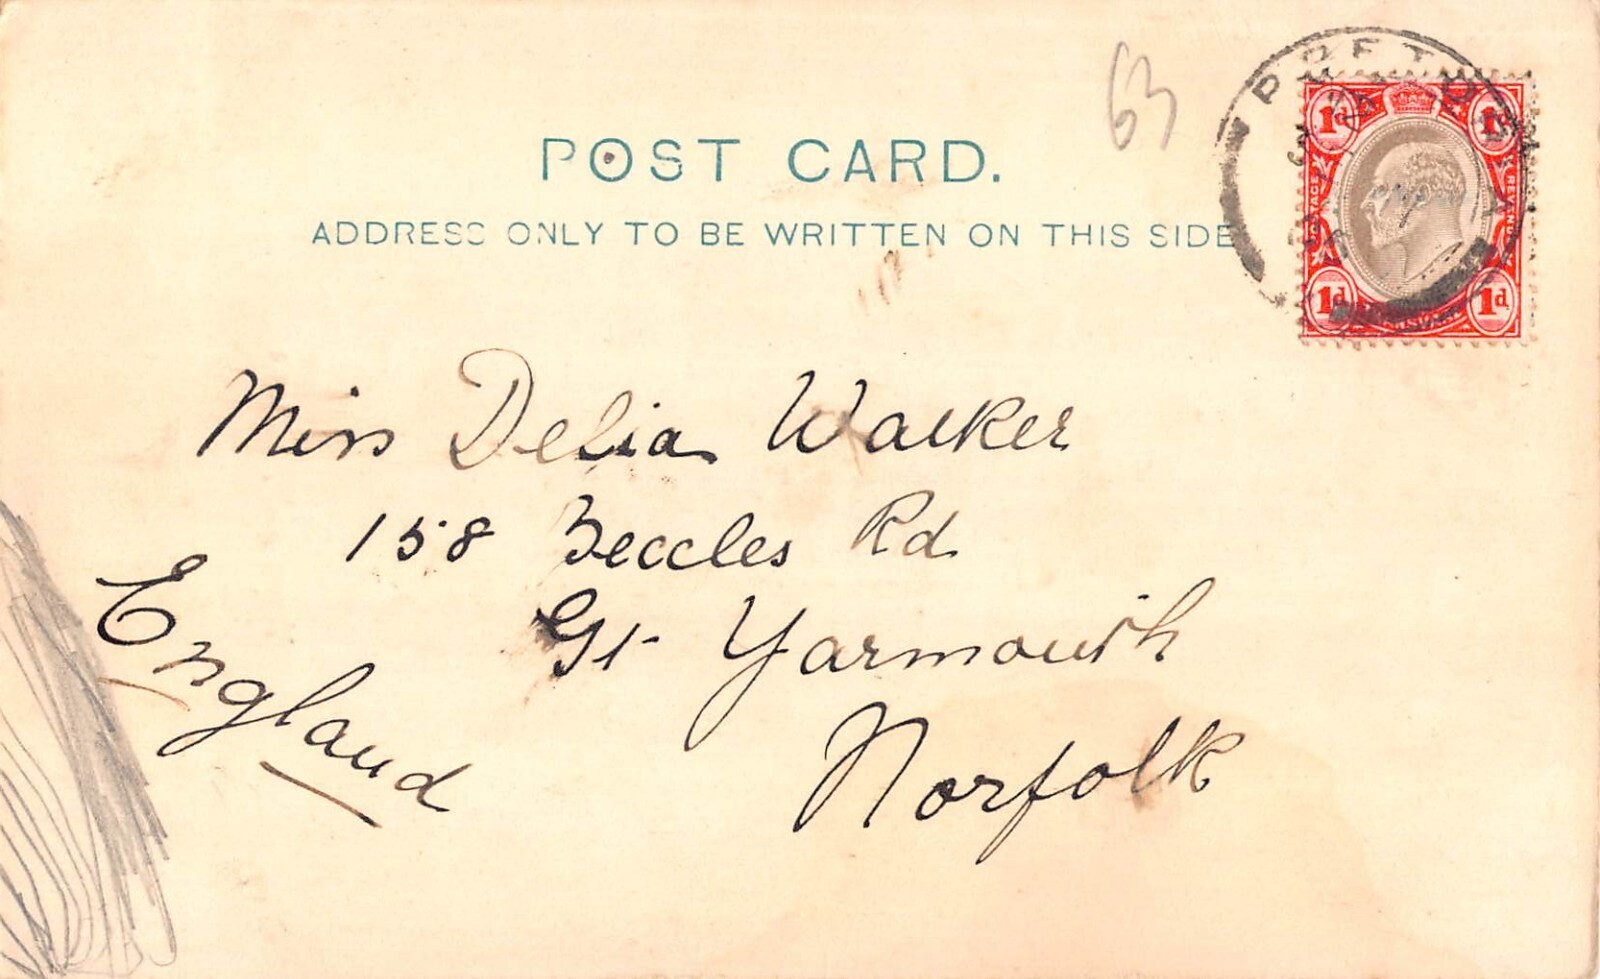 63
POST CARD.
ADDRESS ONLY TO BE WRITTEN ON THIS SIDE
PRETORIA
1d 1d
POSTAGE REVENUE
1d 1d
TRANSVAAL
Miss Delia Walker
158 Beccles Rd
Gt Yarmouth
Norfolk
England